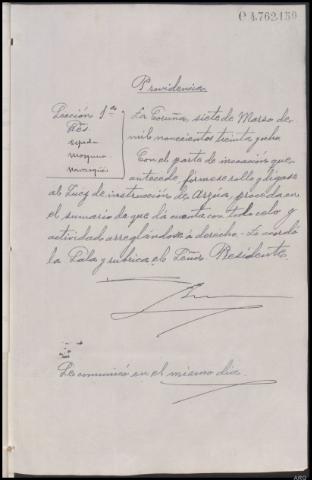 C 4.762.159
Providencia
Sección 1ª
La Coruña, siete de Marzo de
mil novecientos treinta y ocho
Con el parte de incoación que
antecede fórmese rollo y dígase
al Juez de instrucción de Arzúa, proceda en
el sumario de que da cuenta con todo celo y
actividad arreglándose a derecho. Lo acordó
la Sala y rubrica el Señor Presidente.
Se comunicó en el mismo día.